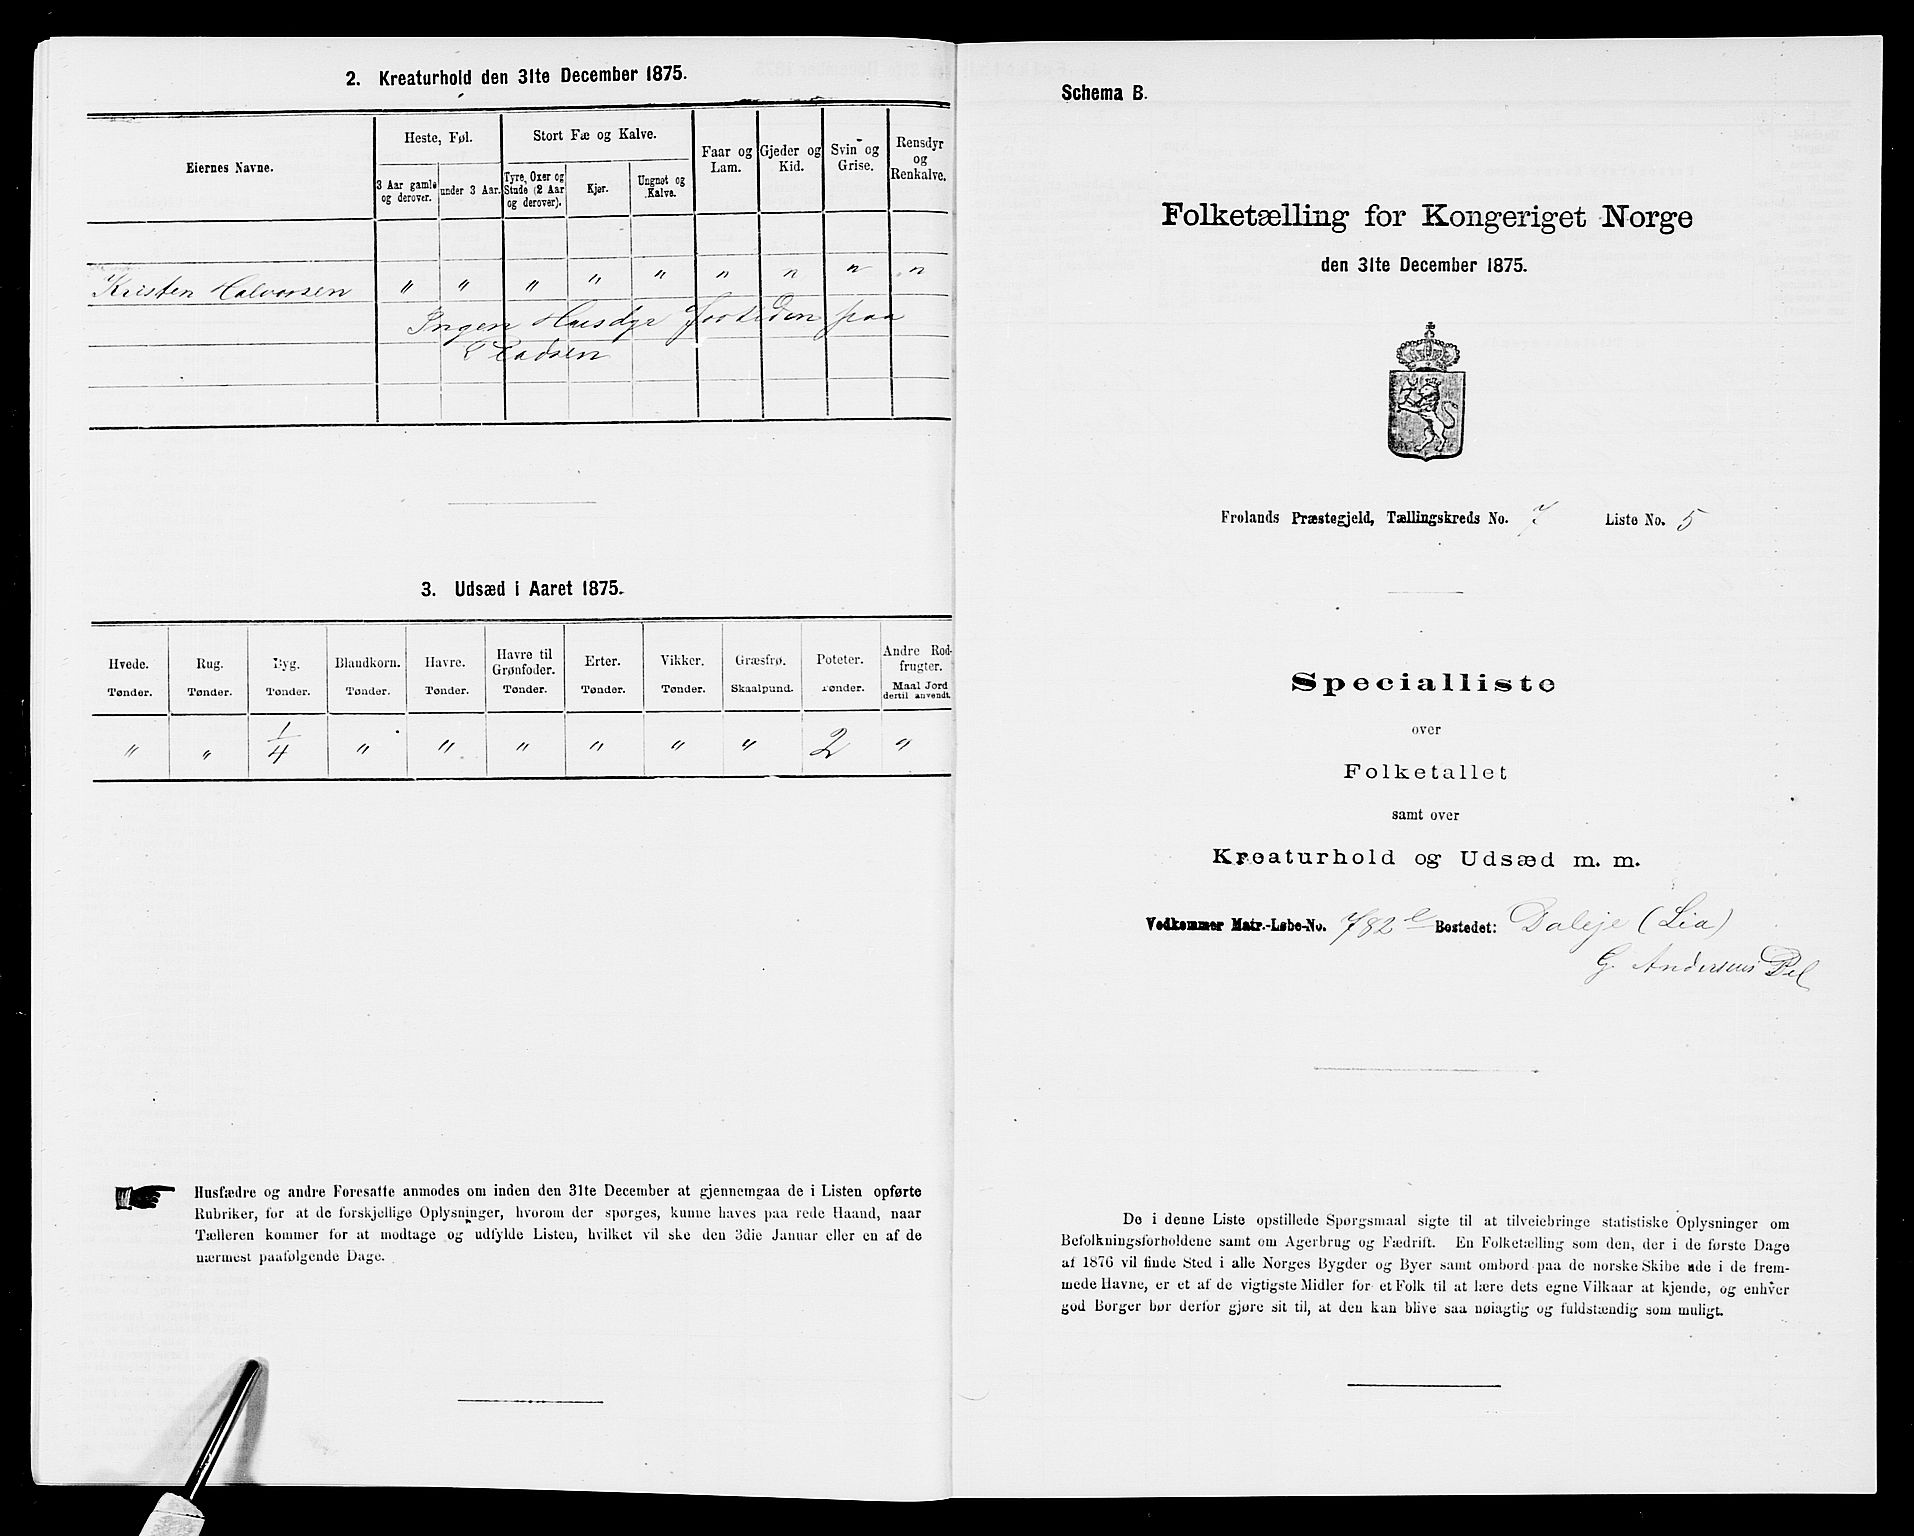 2. Kreaturhold den 31te December 1875.
Eiernes Navne.
Heste, Føl.
Stort Fæ og Kalve.
Faar og
Lam.
Gjeder og
Kid.
Svin og
Grise.
Rensdyr
og
Renkalve.
3 Aar gamle
og derover.
under 3 Aar.
Tyre, Oxer og
Stude (2 Aar
og derover).
Kjør.
Ungnøt og
Kalve.
Kristen Halvorsen " " " " " " " " "
Ingen Husdyr for tiden paa
Pladsen
3. Udsæd i Aaret 1875.
Hvede. Rug. Byg. Blandkorn. Havre. Havre til Grønfoder. Erter. Vikker. Græsfrø. Poteter. Andre Rodfrugter.
Tønder. Tønder. Tønder. Tønder. Tønder. Tønder. Tønder. Tønder. Skaalpund. Tønder. Maal Jord dertil anvendt.
" " 1/4 " " " " " " 2 "
Husfædre og andre Foresatte anmodes om inden den 31te December at gjennemgaa de i Listen opførte
Rubriker, for at de forskjellige Oplysninger, hvorom der spørges, kunne haves paa rede Haand, naar
Tælleren kommer for at modtage og udfylde Listen, hvilket vil ske den 3die Januar eller en af de
nærmest paafølgende Dage.
Schema B.
Folketælling for Kongeriget Norge
den 31te December 1875.
Frolands Præstegjeld, Tællingskreds No. 7 Liste No. 5
Specialliste
over
Folketallet
samt over
Kreaturhold og Udsæd m. m.
Vedkommer Matr.-Løbe-No. 782 e Bostedet: Daleje (Lia)
G. Andersens Del
De i denne Liste opstillede Spørgsmaal sigte til at tilveiebringe statistiske Oplysninger om
Befolkningsforholdene samt om Agerbrug og Fædrift. En Folketælling som den, der i de første Dage
af 1876 vil finde Sted i alle Norges Bygder og Byer samt ombord paa de norske Skibe ude i de frem-
mede Havne, er et af de vigtigste Midler for et Folk til at lære dets egne Vilkaar at kjende, og enhver
god Borger bør derfor gjøre sit til, at den kan blive saa nøiagtig og fuldstændig som muligt.